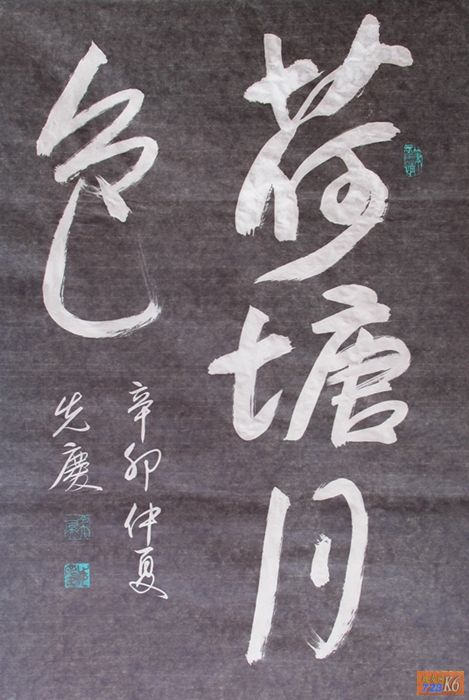 荷塘月
色
辛卯仲夏
先慶
728 K6